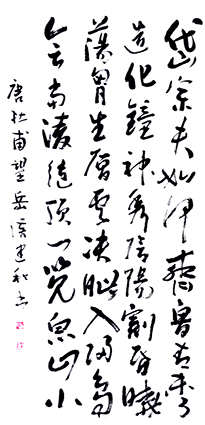 岱宗夫如何齊魯青未了
造化鐘神秀陰陽割昏曉
蕩胸生層雲決眥入歸鳥
会當凌絕頂一覽眾山小
唐杜甫望岳